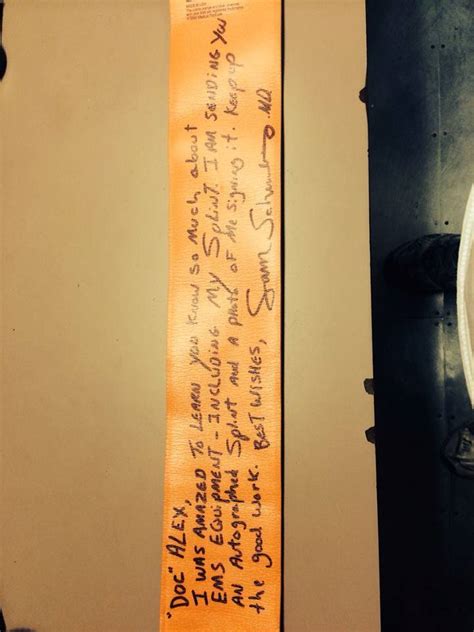 "DOC" ALEX,
I WAS AMAZED TO LEARN YOU KNOW SO MUCH ABOUT
EMS EQUIPMENT - INCLUDING MY SPLINT. I AM SENDING YOU
AN AUTOGRAPHED SPLINT AND A PHOTO OF ME SIGNING IT. KEEP UP
the good work. BEST WISHES, Sam MD